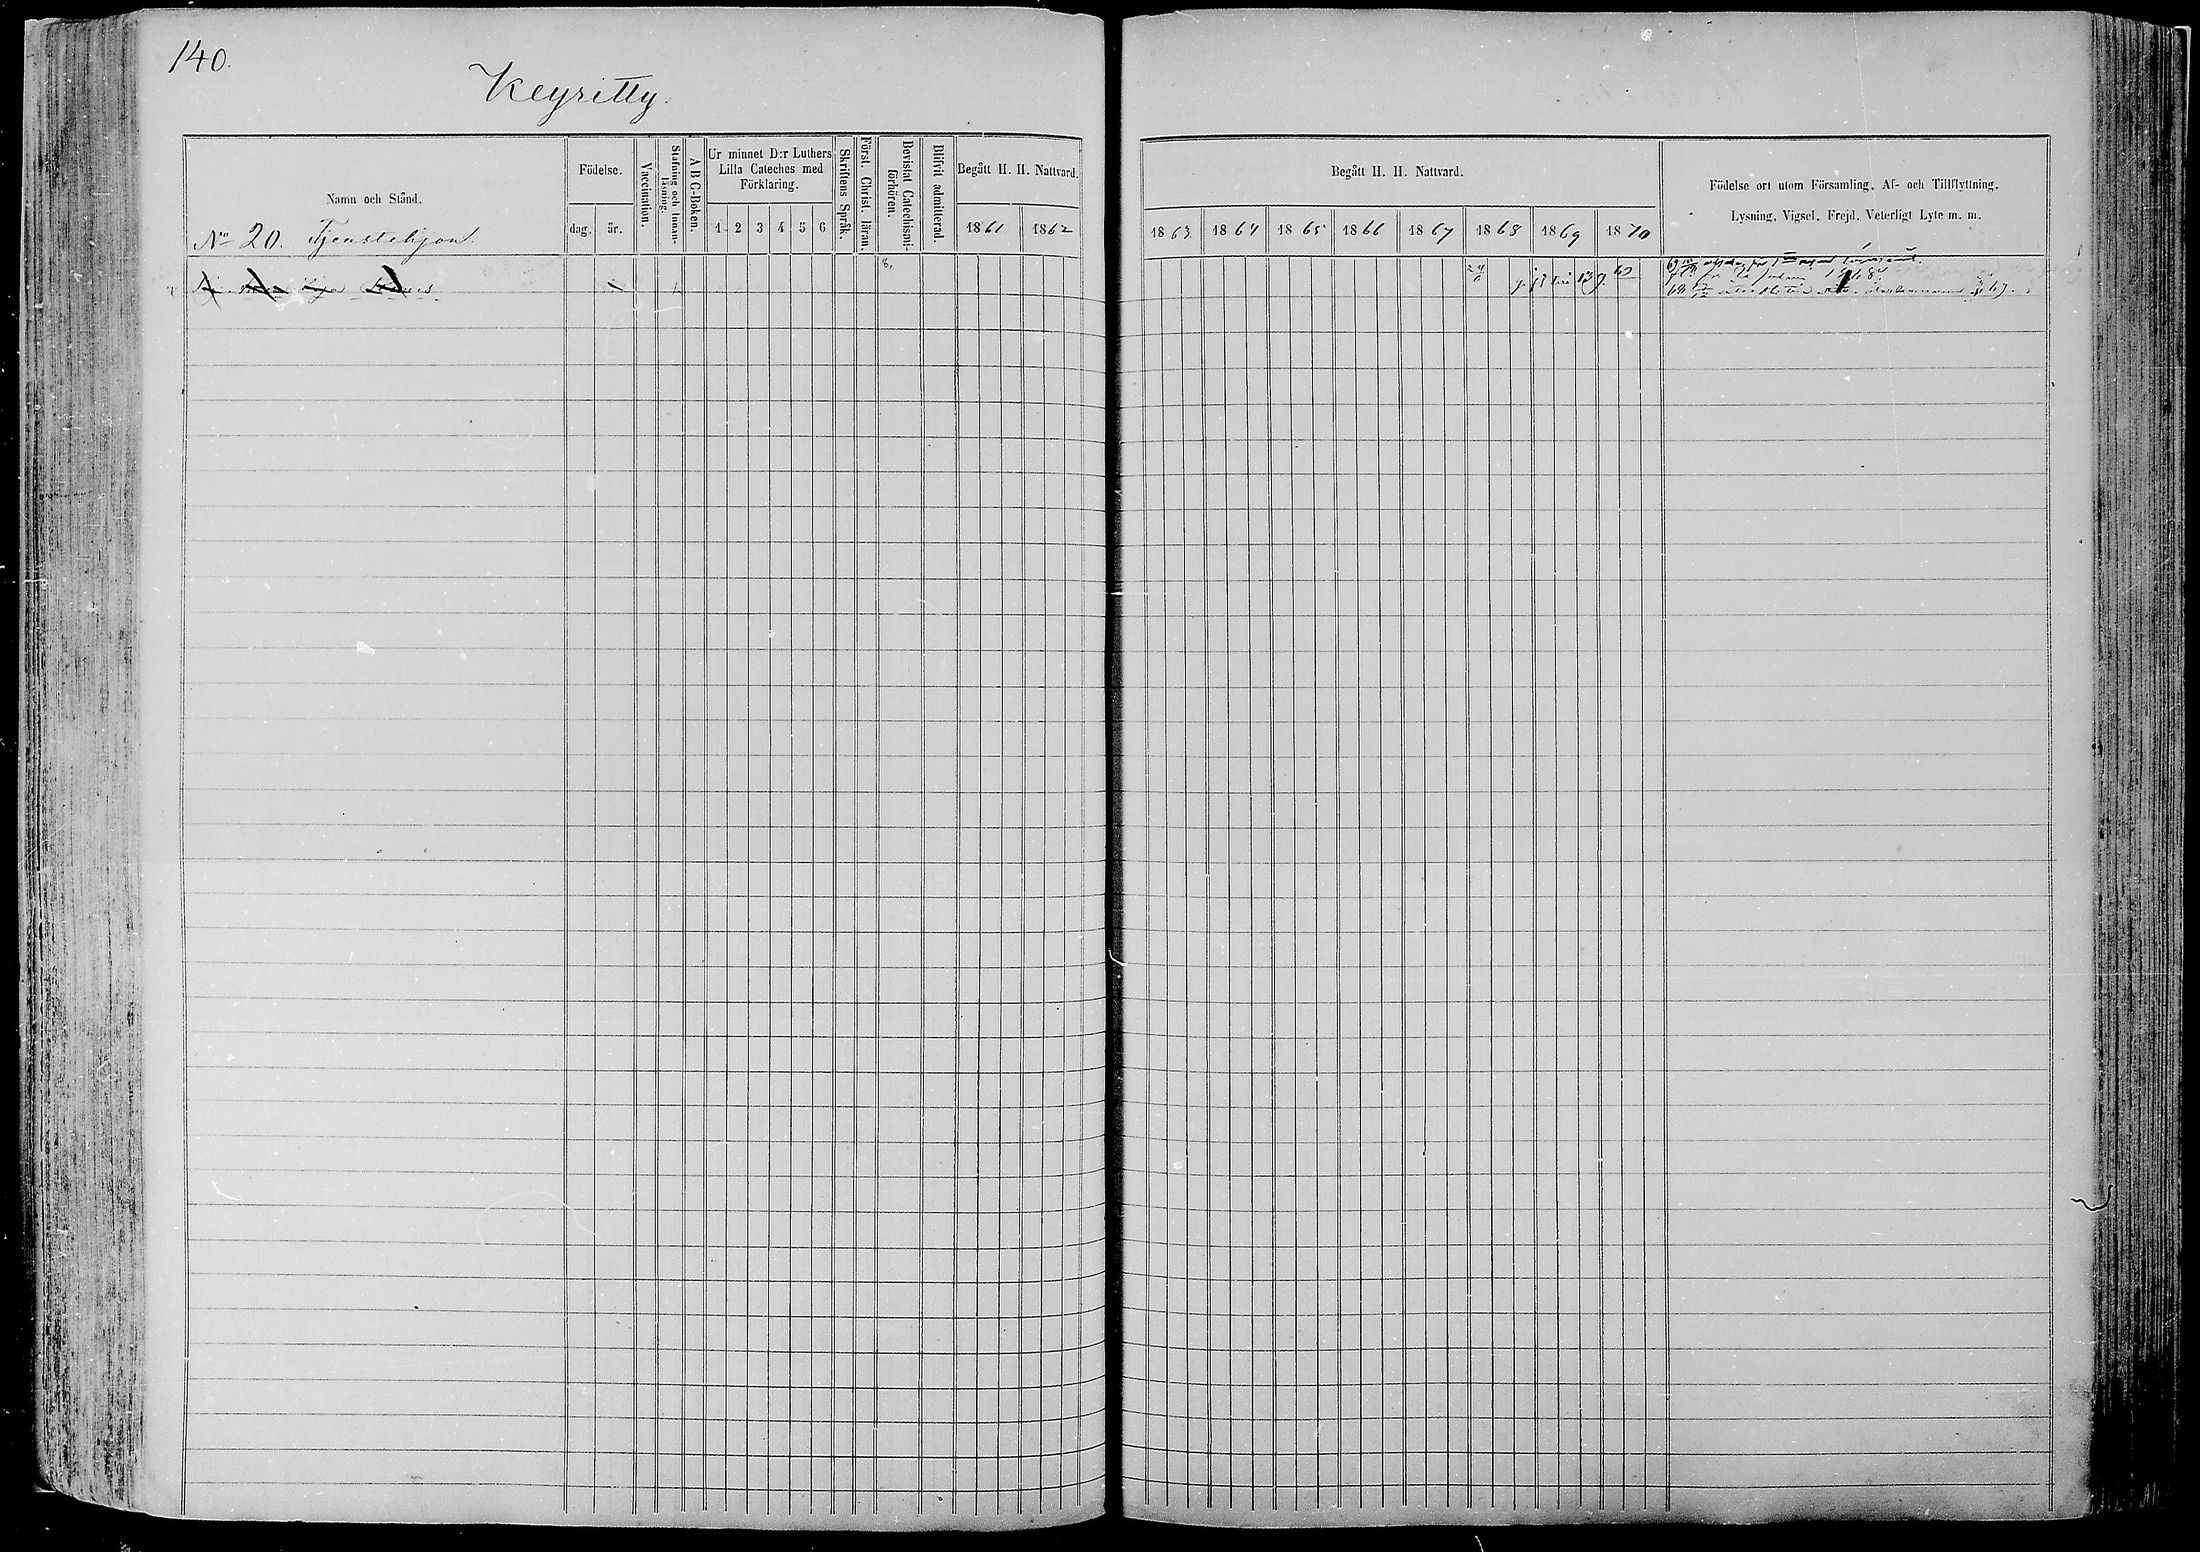 140.
Keyritty.
Namn och Stånd.
No 20. Tjenstehjon.
Födelse.
dag. år.
Vaccination.
Stafning och Innan-
läsning.
A B C-Boken.
Ur minnet D:r Luthers
Lilla Cateches med
Förklaring.
1 2 3 4 5 6
Skriftens Språk.
Först. Christ. läran.
Bevistat Catechismi-
förhören.
Blifvit admitterad.
Begått H. H. Nattvard.
1861 1862
Begått H. H. Nattvard.
1863 1864 1865 1866 1867 1868 1869 1870
Födelse ort utom Församling, Af- och Tillflyttning,
Lysning, Vigsel, Frejd, Veterligt Lyte m. m.
8.